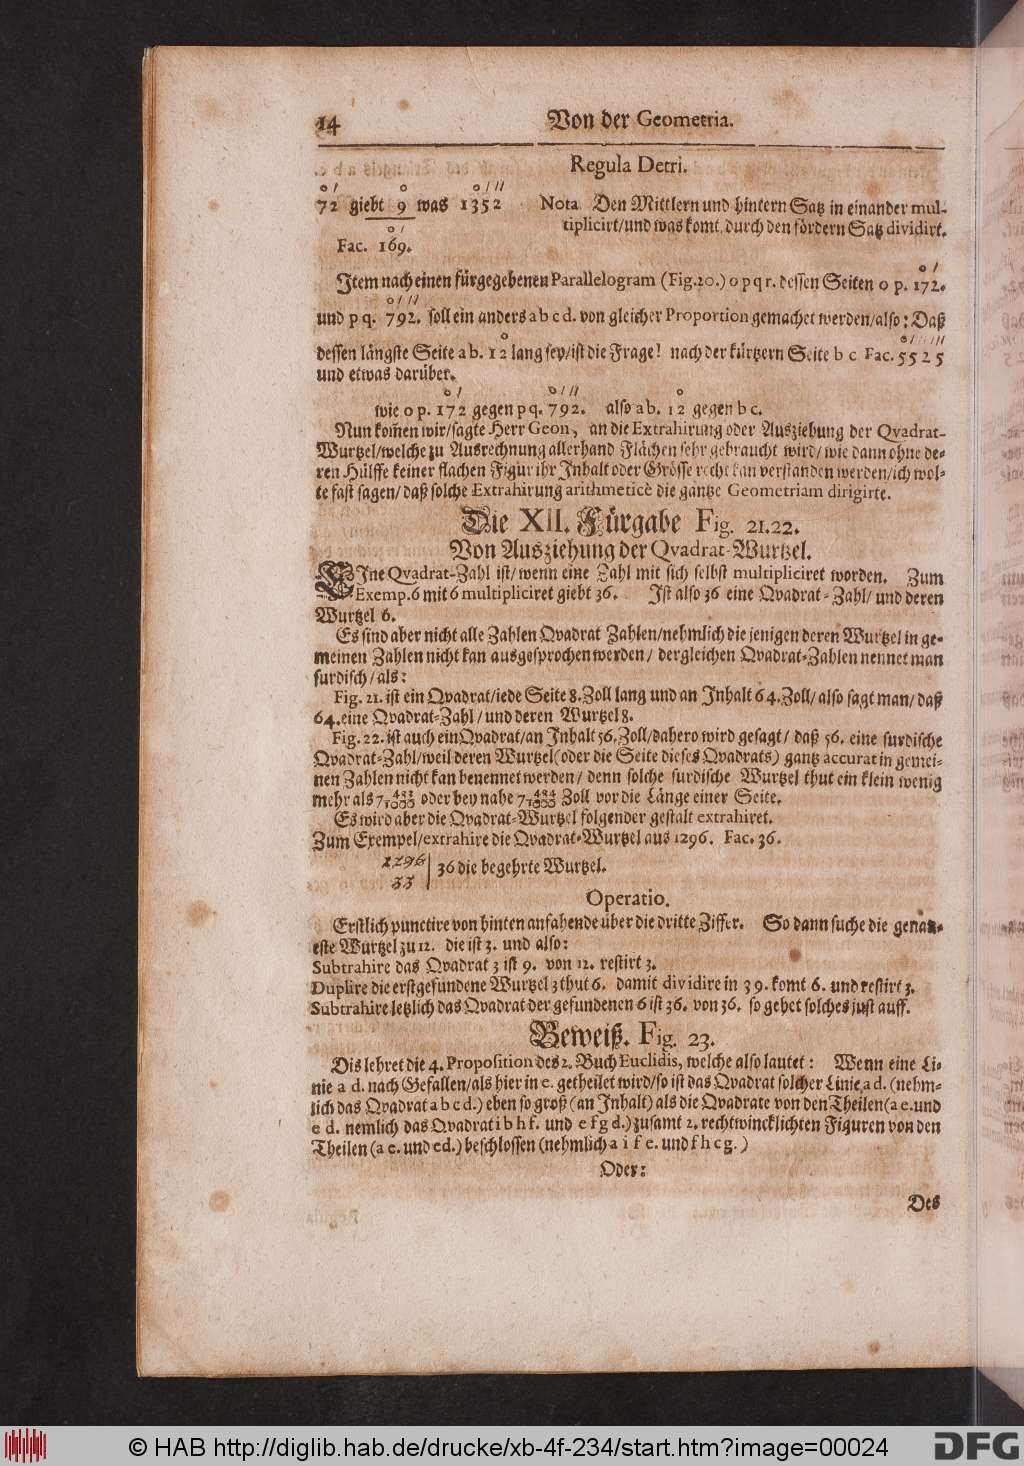 14 Von der Geometria.
Regula Detri.
0 / 0 0 / //
72 giebt 9 was 1352 Nota. Den Mittlern und hintern Satz in einander mul-
tiplicirt/und was komt, durch den fördern Satz dividirt.
0 /
Fac. 169.
Item nach einen fürgegebenen Parallelogram (Fig.20.) o p q r. dessen Seiten o p. 172.
und p q. 792. soll ein anders a b c d. von gleicher Proportion gemachet werden/also: Daß
dessen längste Seite a b. 12 lang sey/ist die Frage! nach der kürtzern Seite b c Fac. 5525
und etwas darüber.
0 / 0 / // 0
wie o p. 172 gegen p q. 792. also a b. 12 gegen b c.
Nun kom̃en wir/sagte Herr Geon, an die Extrahirung oder Ausziehung der Qvadrat-
Wurtzel/welche zu Ausrechnung allerhand Flächen sehr gebraucht wird/wie dann ohne de-
ren Hülffe keiner flachen Figur ihr Inhalt oder Grösse recht kan verstanden werden/ich wol-
te fast sagen/daß solche Extrahirung arithmeticè die gantze Geometriam dirigirte.
Die XII. Fürgabe Fig. 21.22.
Von Ausziehung der Qvadrat-Wurtzel.
EIne Qvadrat-Zahl ist/wenn eine Zahl mit sich selbst multipliciret worden. Zum
Exemp. 6 mit 6 multipliciret giebt 36. Ist also 36 eine Qvadrat-Zahl/und deren
Wurtzel 6.
Es sind aber nicht alle Zahlen Qvadrat Zahlen/nehmlich die jenigen deren Wurtzel in ge-
meinen Zahlen nicht kan ausgesprochen werden/ dergleichen Qvadrat-Zahlen nennet man
surdisch/als:
Fig. 21. ist ein Qvadrat/iede Seite 8. Zoll lang und an Inhalt 64. Zoll/also sagt man/daß
64. eine Qvadrat-Zahl/und deren Wurtzel 8.
Fig. 22. ist auch ein Qvadrat/an Inhalt 56. Zoll/dahero wird gesagt/ daß 56. eine surdische
Qvadrat-Zahl/weil deren Wurtzel (oder die Seite dieses Qvadrats) gantz accurat in gemei-
nen Zahlen nicht kan benennet werden/ denn solche surdische Wurtzel thut ein klein wenig
mehr als 7 483/1000 oder bey nahe 7 484/1000 Zoll vor die Länge einer Seite.
Es wird aber die Qvadrat-Wurtzel folgender gestalt extrahiret.
Zum Exempel/extrahire die Qvadrat-Wurtzel aus 1296. Fac. 36.
1296| 36 die begehrte Wurtzel.
33
Operatio.
Erstlich punctire von hinten anfahende über die dritte Ziffer. So dann suche die genau-
este Wurtzel zu 12. die ist 3. und also:
Subtrahire das Qvadrat 3 ist 9. von 12. restirt 3.
Duplire die erstgefundene Wurtzel 3 thut 6. damit dividire in 39. komt 6. und restirt 3.
Subtrahire letzlich das Qvadrat der gefundenen 6 ist 36. von 36. so gehet solches just auff.
Beweiß. Fig. 23.
Dis lehret die 4. Proposition des 2. Buch Euclidis, welche also lautet: Wenn eine Li-
nie a d. nach Gefallen/als hier in e. getheilet wird/so ist das Qvadrat solcher Linie a d. (nehm-
lich das Qvadrat a b c d.) eben so groß (an Inhalt) als die Qvadrate von den Theilen (a e. und
e d. nemlich das Qvadrat i b h f. und e f g d.) zusamt 2. rechtwincklichten Figuren von den
Theilen (a e. und ed.) beschlossen (nehmlich a i f e. und f h c g.)
Oder:
Des
© HAB http://diglib.hab.de/drucke/xb-4f-234/start.htm?image=00024
DFG